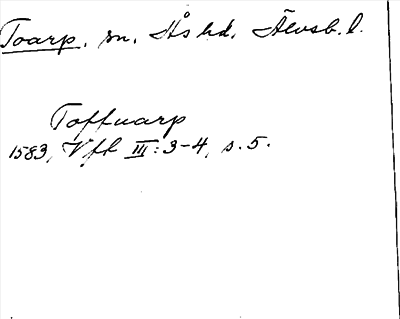 Toarp, sn, Ås hd, Älvsb. l.
Toffuarp
1583, Vfl III:3-4, s. 5.